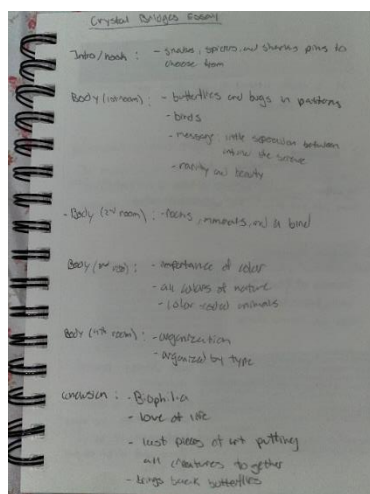 Crystal Bridges Essay
Intro/hook : - snakes, spiders, and sharks pins to
choose from
Body (1st room) : - butterflies and bugs in patterns
- birds
- message: little separation between
the
- rarity and beauty
- Body (2nd room) : - rocks, minerals, and a bird
Body (3rd room) : - importance of color
- all colors of nature
- color coded animals
Body (4th room) : - organization
- organized by type
Conclusion : - Biophilia
- love of life
- last pieces of art putting
all creatures together
- brings back butterflies